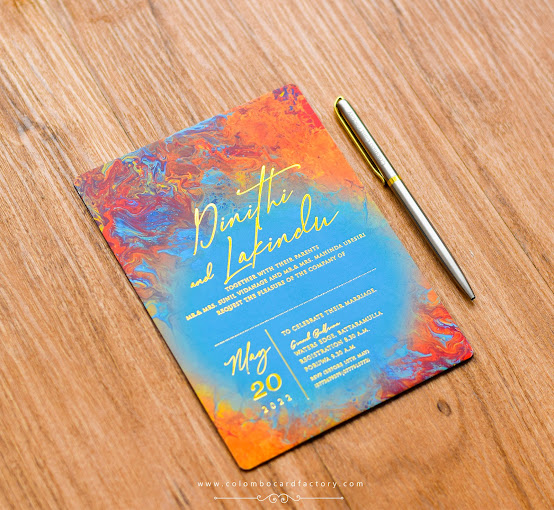 Dinithi
and Lakindu
TOGETHER WITH THEIR PARENTS
MR.& MRS. SUNIL VIDANAGE AND MR.& MRS. MAHINDA
REQUEST THE PLEASURE OF THE COMPANY OF
May
20
2022
TO CELEBRATE THEIR MARRIAGE.
Grand Ballroom
WATERS EDGE, BATTARAMULLA
REGISTRATION 9.30 A.M
PORUWA 9.30 A.M
RSVP (BEFORE 10TH MAY)
www.colombocardfactory.com